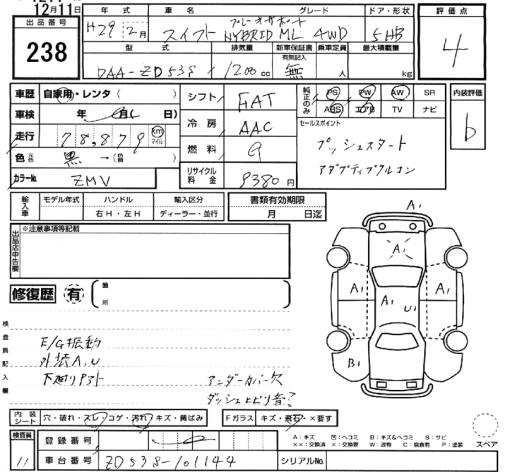 12月11日
出品番号
238
年式 車名 グレード ドア・形状
H29 2月 スイフト HYBRID ML 4WD 5HB
型式 排気量 新車保証書 乗車定員 最大積載量
有無記入
DAA-ZD53S 1200cc 無 人 kg
評価点
4
車歴 自家用・レンタ( )
車検 年 月( 日)
走行 78,879 km マイル
色 元色 黒 →(色替 )
カラーNo. ZMV
シフト FAT
冷房 AAC
燃料 G
リサイクル料金 9380円
純正のみ PS PW AW SR
ABS エアB TV ナビ
セールスポイント
プッシュスタート
アダプティブクルコン
内装評価
b
輸入車 モデル年式 ハンドル 輸入区分
右H・左H ディーラー・並行
書類有効期限
月 日迄
出品店申告欄
※注意事項等記載
修復歴 有 箇所
検査員記入欄
E/G振動
外装A.U
下廻りサビ
アンダーカバー欠
A1
A1
A1 A1 A1
U1
B1
内装シート 穴・破れ・スレ・コゲ・汚れ・キズ・黄ばみ
Fガラス キズ・飛石・×要す
スペア
検査員
11
登録番号
車台番号 ZD53S-101144
シリアルNo.
A:キズ 凹:ヘコミ B:キズ&ヘコミ S:サビ
××:交換済 ×:交換要 W:波有 C:腐食有 P:塗装